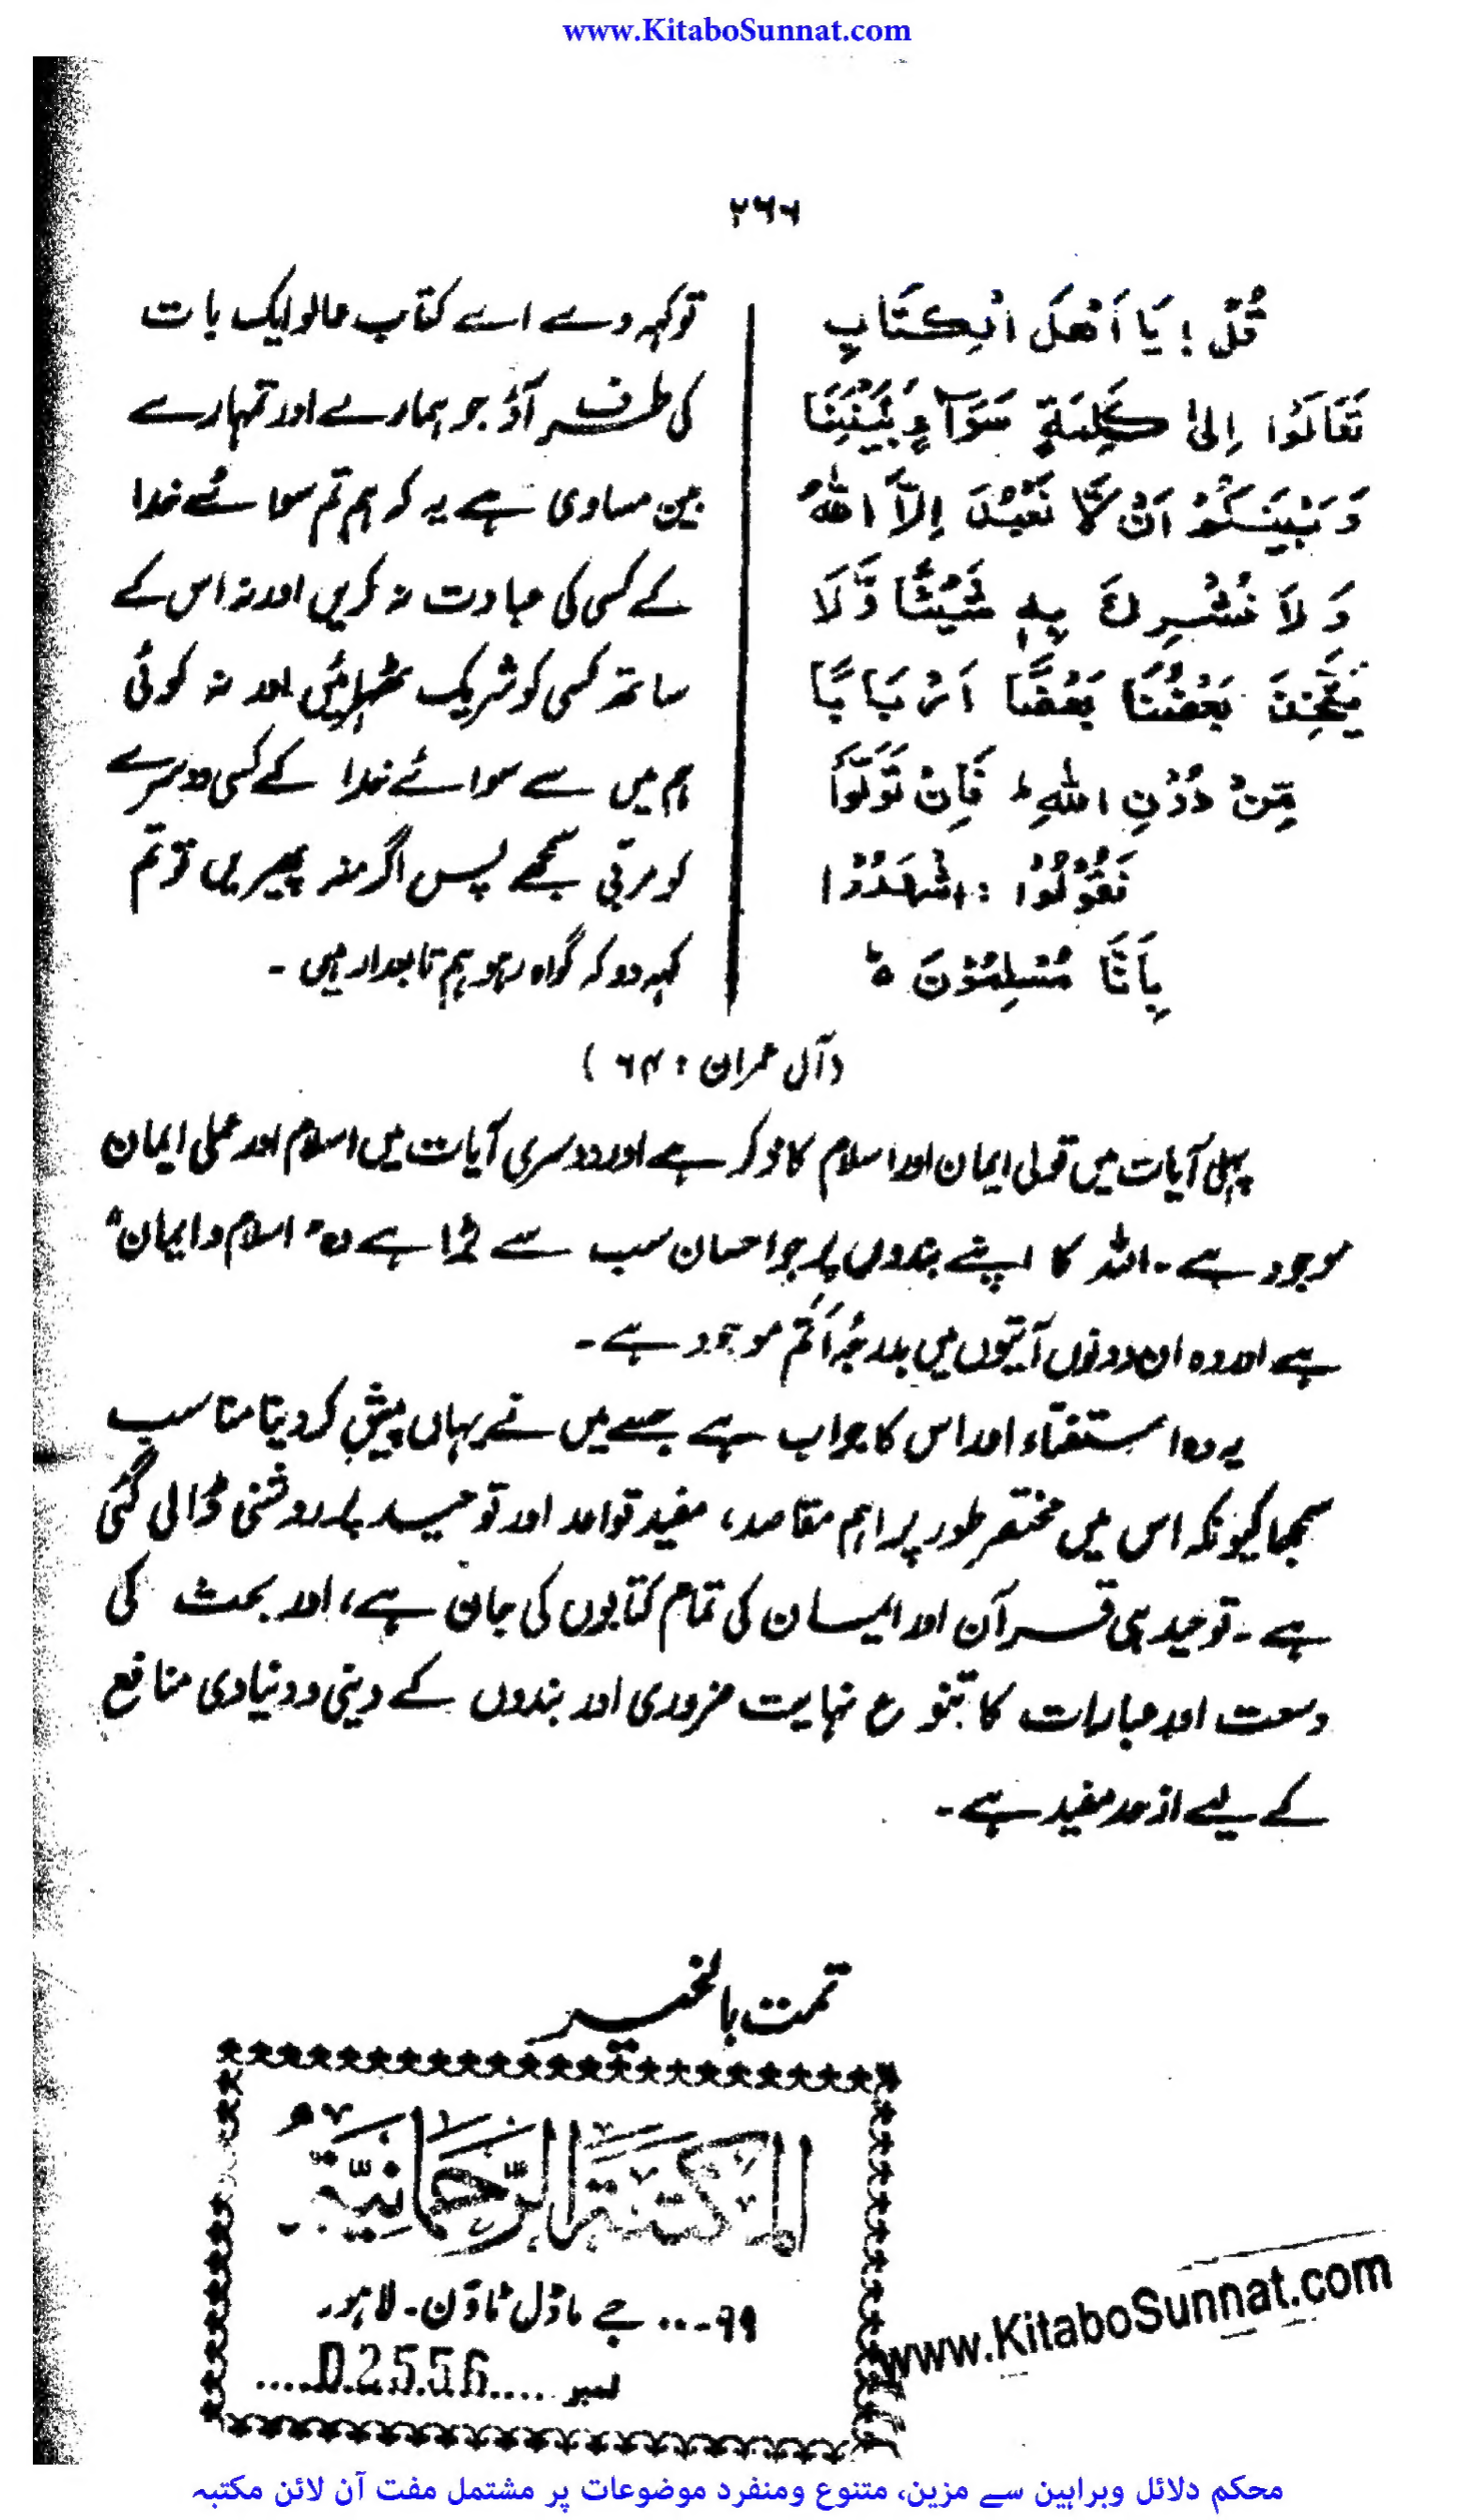 www.KitaboSunnat.com
۲۶۶
قُلْ! يَا اَهْلَ الْكِتَابِ
تَعَالَوْا اِلىٰ كَلِمَةٍ سَوَآءٍ بَيْنَنَا
وَبَيْنَكُمْ اَنْ لَّا نَعْبُدَ اِلَّا اللّٰهَ
وَلَا نُشْرِكَ بِهٖ شَيْئًا وَّلَا
يَتَّخِذَ بَعْضُنَا بَعْضًا اَرْبَابًا
مِّنْ دُوْنِ اللّٰهِ ط فَاِنْ تَوَلَّوْا
فَقُوْلُوْا: اشْهَدُوْا
بِاَنَّا مُسْلِمُوْنَ ط
تو کہہ دے اے کتاب والو ایک بات
کی طرف آؤ جو ہمارے اور تمہارے
بین مساوی ہے یہ کہ ہم تم سوائے خدا
کے کسی کی عبادت نہ کریں اور نہ اس کے
ساتھ کسی کو شریک ٹھہرائیں اور نہ کوئی
ہم میں سے سوائے خدا کے کسی دوسرے
کو مربی سمجھے پس اگر منہ پھیریں تو تم
کہہ دو کہ گواہ رہو ہم تابعدار ہیں ۔
(آل عمران : ۶۴)
پہلی آیات میں قولی ایمان اور اسلام کا ذکر ہے اور دوسری آیات میں اسلام اور عملی ایمان
موجود ہے ۔ اللہ کا اپنے بندوں پر جو احسان سب سے بڑا ہے وہ "اسلام و ایمان"
ہے اور وہ ان دونوں آیتوں میں بدرجۂ اَتم موجود ہے ۔
یہ وہ استفتاء اور اس کا جواب ہے جسے میں نے یہاں پیش کر دینا مناسب
سمجھا کیونکہ اس میں مختصر طور پر اہم مقاصد، مفید قواعد اور توحید پر روشنی ڈالی گئی
ہے ۔ توحید ہی قرآن اور ایمان کی تمام کتابوں کی جان ہے، اور بحث کی
وسعت اور عبارات کا تنوع نہایت ضروری اور بندوں کے دینی و دنیاوی منافع
کے لیے ازحد مفید ہے ۔
تمت بالخیر
المکتبۃ الرحمانیۃ
۹۹۔۔۔ جے ماڈل ٹاؤن ۔ لاہور
نمبر ....02556.....
www.KitaboSunnat.com
محکم دلائل وبراہین سے مزین، متنوع ومنفرد موضوعات پر مشتمل مفت آن لائن مکتبہ